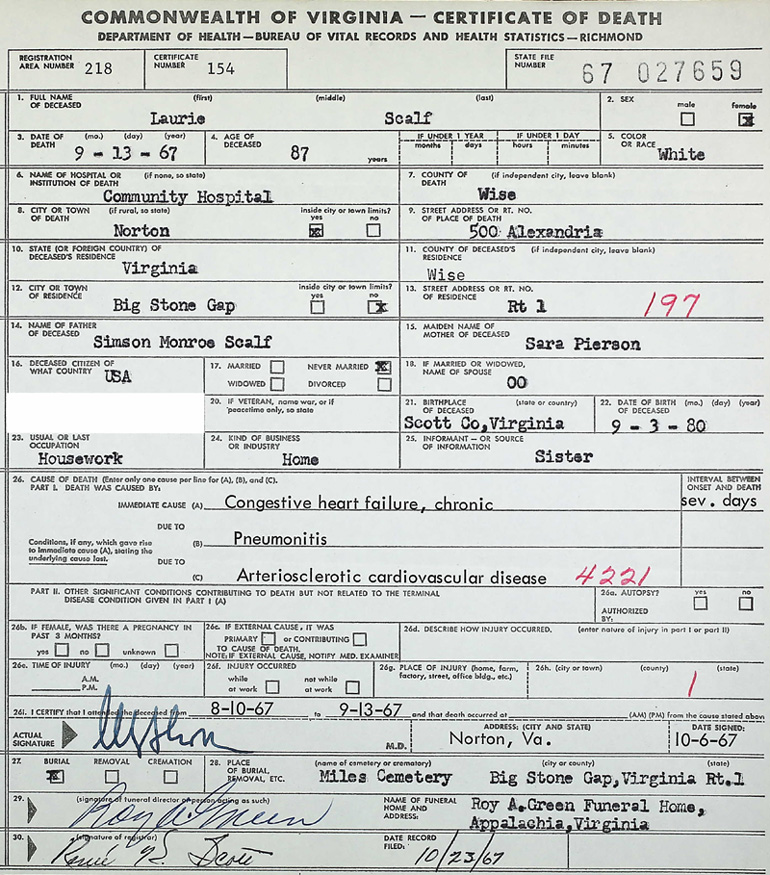 COMMONWEALTH OF VIRGINIA — CERTIFICATE OF DEATH
DEPARTMENT OF HEALTH — BUREAU OF VITAL RECORDS AND HEALTH STATISTICS — RICHMOND
REGISTRATION AREA NUMBER 218 CERTIFICATE NUMBER 154 STATE FILE NUMBER 67 027659
1. FULL NAME OF DECEASED (first) (middle) (last) 2. SEX male female
Laurie Scalf
3. DATE OF DEATH (mo.) (day) (year) 4. AGE OF DECEASED IF UNDER 1 YEAR months days IF UNDER 1 DAY hours minutes 5. COLOR OR RACE
9 - 13 - 67 87 years White
6. NAME OF HOSPITAL OR INSTITUTION OF DEATH (if none, so state) 7. COUNTY OF DEATH (if independent city, leave blank)
Community Hospital Wise
8. CITY OR TOWN OF DEATH (if rural, so state) inside city or town limits? yes no 9. STREET ADDRESS OR RT. NO. OF PLACE OF DEATH
Norton 500 Alexandria
10. STATE (OR FOREIGN COUNTRY) OF DECEASED'S RESIDENCE 11. COUNTY OF DECEASED'S RESIDENCE (if independent city, leave blank)
Virginia Wise
12. CITY OR TOWN OF RESIDENCE inside city or town limits? yes no 13. STREET ADDRESS OR RT. NO. OF RESIDENCE
Big Stone Gap Rt 1 197
14. NAME OF FATHER OF DECEASED 15. MAIDEN NAME OF MOTHER OF DECEASED
Simson Monroe Scalf Sara Pierson
16. DECEASED CITIZEN OF WHAT COUNTRY 17. MARRIED NEVER MARRIED 18. IF MARRIED OR WIDOWED, NAME OF SPOUSE
USA WIDOWED DIVORCED 00
20. IF VETERAN, name war, or if peacetime only, so state 21. BIRTHPLACE OF DECEASED (state or country) 22. DATE OF BIRTH OF DECEASED (mo.) (day) (year)
Scott Co,Virginia 9 - 3 - 80
23. USUAL OR LAST OCCUPATION 24. KIND OF BUSINESS OR INDUSTRY 25. INFORMANT — OR SOURCE OF INFORMATION
Housework Home Sister
26. CAUSE OF DEATH (Enter only one cause per line for (A), (B), and (C).) INTERVAL BETWEEN ONSET AND DEATH
PART I. DEATH WAS CAUSED BY:
IMMEDIATE CAUSE (A) Congestive heart failure, chronic sev. days
DUE TO
Conditions, if any, which gave rise to immediate cause (A), stating the underlying cause last. (B) Pneumonitis
DUE TO
(C) Arteriosclerotic cardiovascular disease 4221
PART II. OTHER SIGNIFICANT CONDITIONS CONTRIBUTING TO DEATH BUT NOT RELATED TO THE TERMINAL DISEASE CONDITION GIVEN IN PART I (A) 26a. AUTOPSY? yes no
AUTHORIZED BY:
26b. IF FEMALE, WAS THERE A PREGNANCY IN PAST 3 MONTHS? yes no unknown 26c. IF EXTERNAL CAUSE, IT WAS PRIMARY or CONTRIBUTING TO CAUSE OF DEATH. 26d. DESCRIBE HOW INJURY OCCURRED. (enter nature of injury in part I or part II)
NOTE: IF EXTERNAL CAUSE, NOTIFY MED. EXAMINER
26e. TIME OF INJURY (mo.) (day) (year) A.M. P.M. 26f. INJURY OCCURRED while at work not while at work 26g. PLACE OF INJURY (home, farm, factory, street, office bldg., etc.) 26h. (city or town) (county) (state)
1
26i. I CERTIFY that I attended the deceased from 8-10-67 to 9-13-67 and that death occurred at (AM) (PM) from the cause stated above
ACTUAL SIGNATURE M.D. ADDRESS: (CITY AND STATE) Norton, Va. DATE SIGNED: 10-6-67
27. BURIAL REMOVAL CREMATION 28. PLACE OF BURIAL, REMOVAL, ETC. (name of cemetery or crematory) (city or county) (state)
Miles Cemetery Big Stone Gap,Virginia Rt.1
29. (signature of funeral director or person acting as such) NAME OF FUNERAL HOME AND ADDRESS: Roy A.Green Funeral Home,
Roy A Green Appalachia,Virginia
30. (signature of registrar) DATE RECORD FILED:
Scott 10/23/67